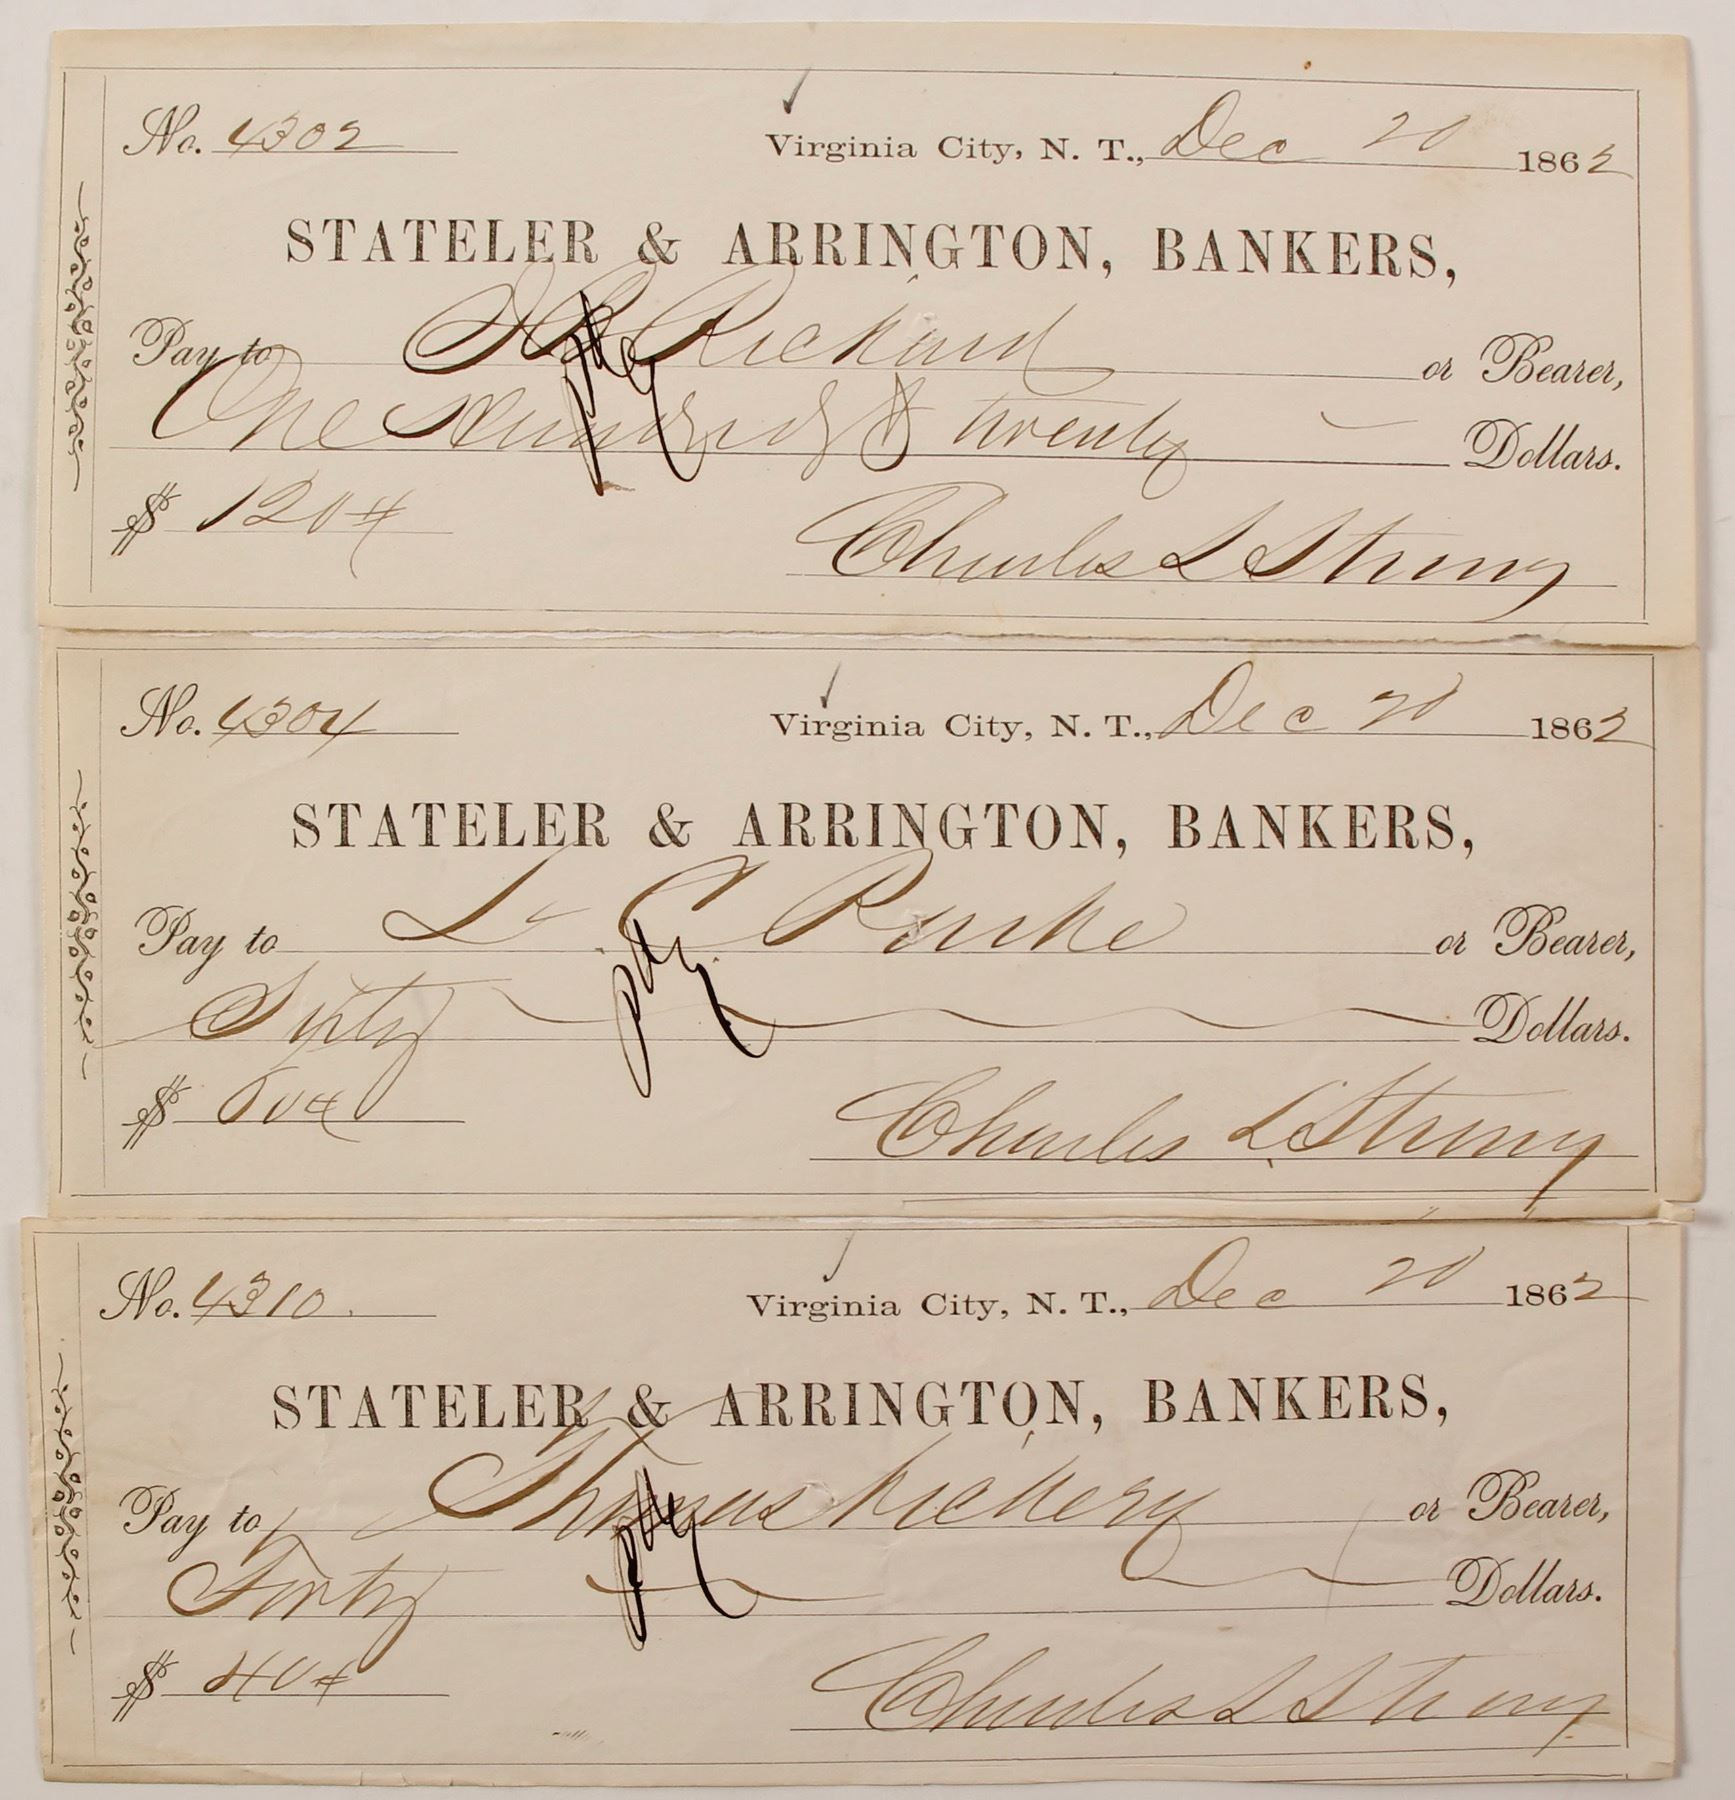 No. 4302
Virginia City, N. T., Dec 20 1862
STATELER & ARRINGTON, BANKERS,
Pay to Rickard or Bearer,
One Hundred & twenty Dollars.
$ 120
Charles L Strong
No. 4304
Virginia City, N. T., Dec 20 1862
STATELER & ARRINGTON, BANKERS,
Pay to L. C. Parke or Bearer,
Sixty Dollars.
$ 60
Charles L Strong
No. 4310
Virginia City, N. T., Dec 20 1862
STATELER & ARRINGTON, BANKERS,
Pay to Thomas Hickery or Bearer,
Forty Dollars.
$ 40
Charles L Strong